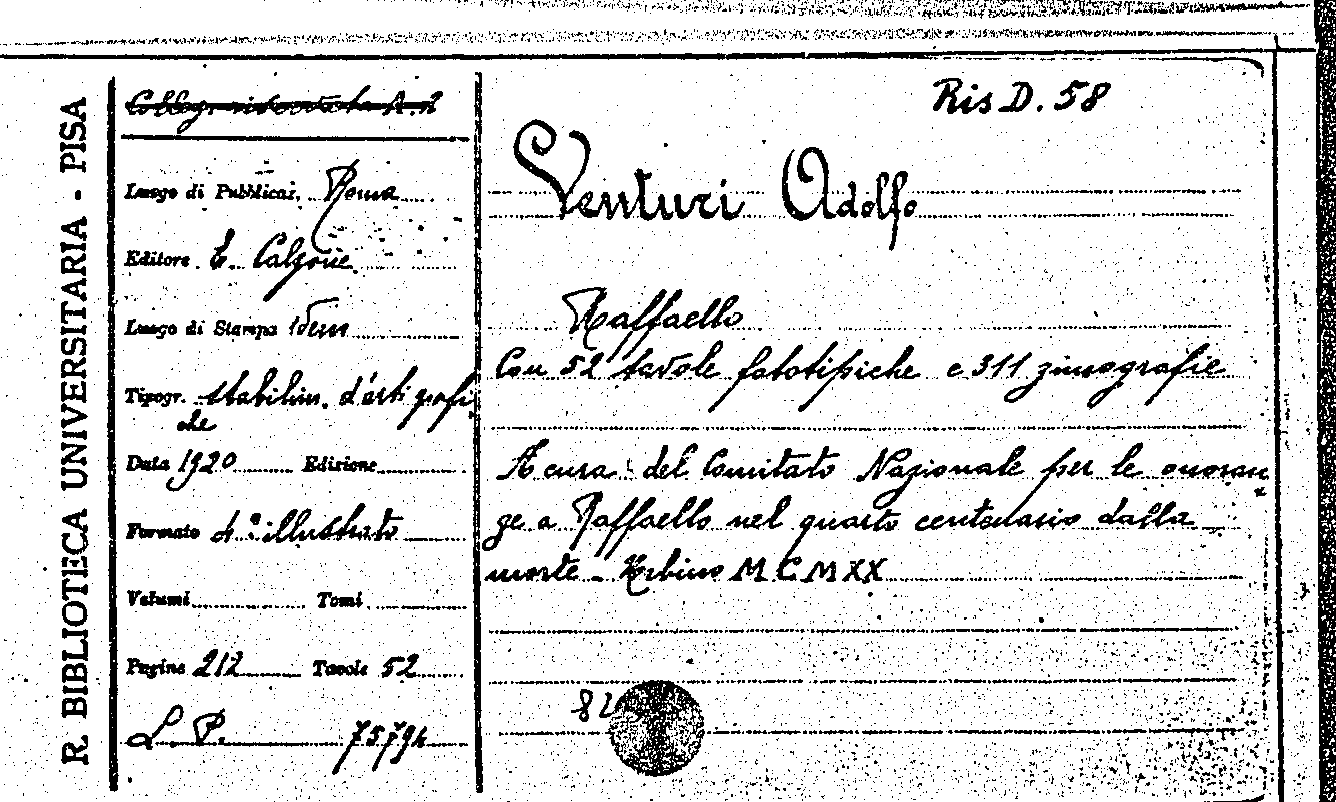 R. BIBLIOTECA UNIVERSITARIA - PISA
Ris D. 58
Luogo di Pubblicaz. Roma
Editore E. Calzone
Luogo di Stampa idem
Tipogr. stabilim. d'arti grafi-
che
Data 1920 Edizione
Formato 4° illustrato
Volumi Tomi
Pagine 212 Tavole 52
L. P. 75794
Venturi Adolfo
Raffaello
Con 52 tavole fototipiche e 311 zincografie
A cura del Comitato Nazionale per le onoran-
ze a Raffaello nel quarto centenario dalla
morte - Urbino MCMXX